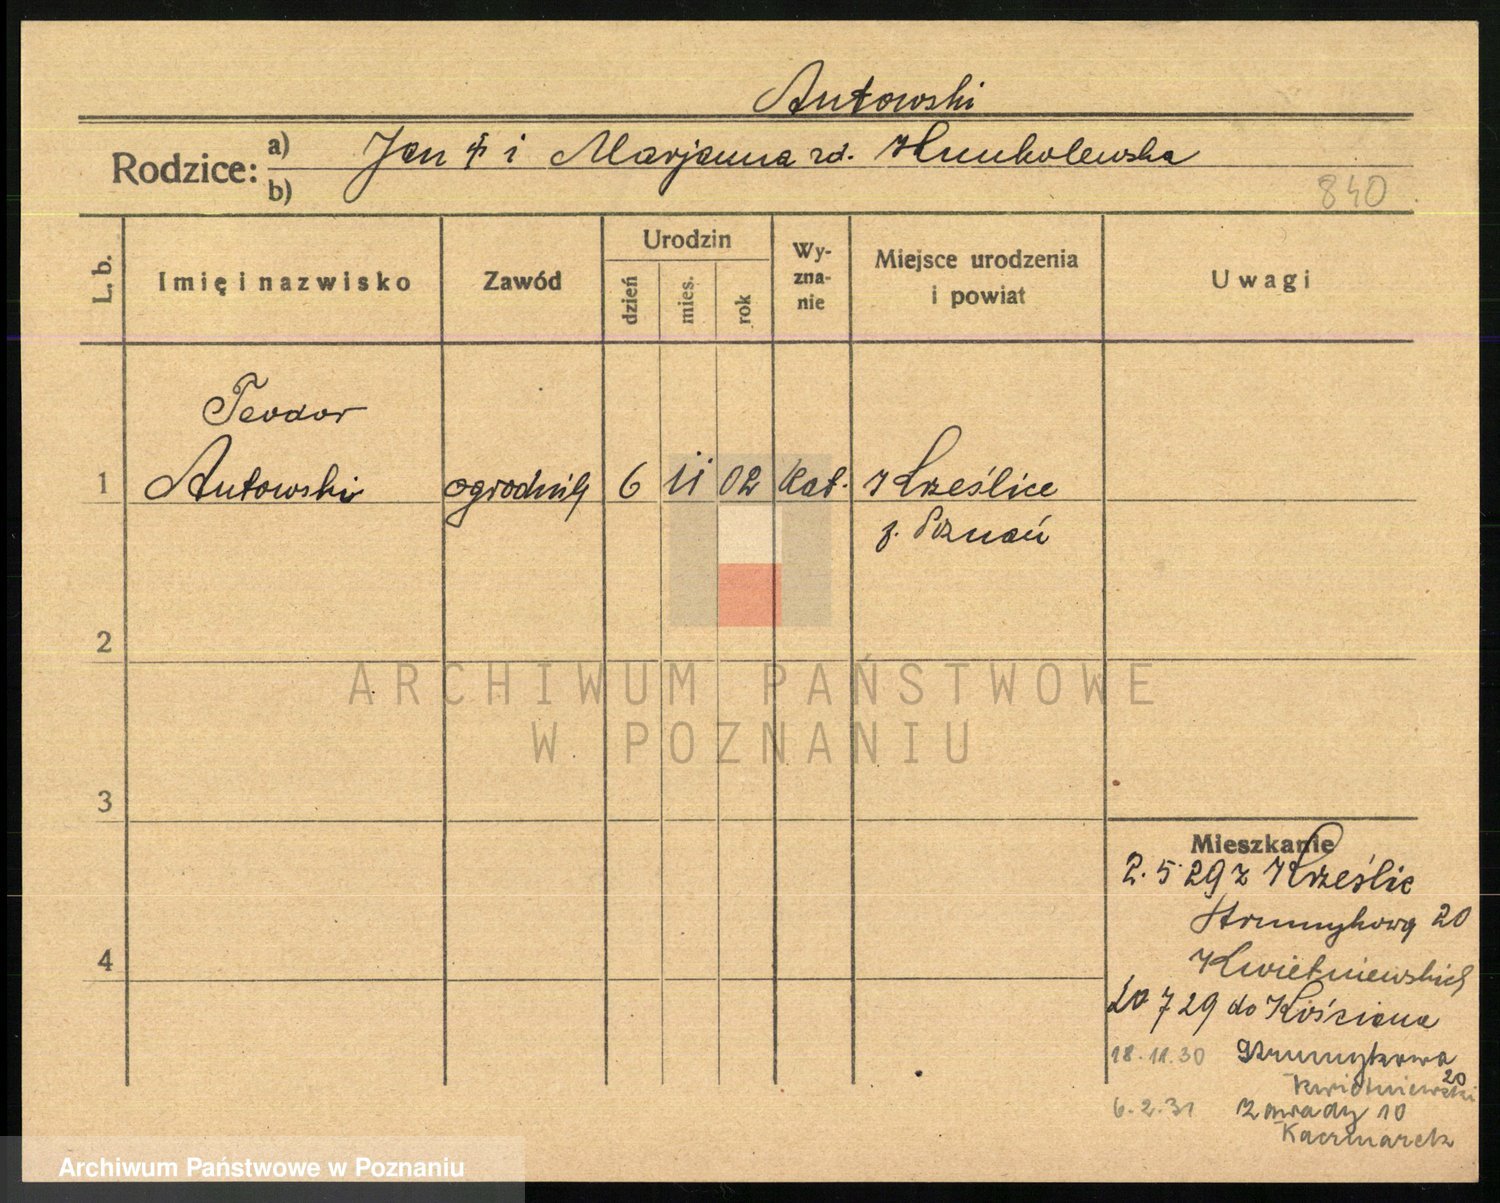 Antowski
Rodzice: a) Jan † i Marjanna zd.
b)
840
L. b.
Imię i nazwisko
Zawód
Urodzin
dzień
mies.
rok
Wy-
zna-
nie
Miejsce urodzenia
i powiat
Uwagi
Teodor
1 Antowski ogrodnik 6 11 02 kat. Krześlice
p. Poznań
2
ARCHIWUM PAŃSTWOWE
W POZNANIU
3
Mieszkanie
2.5.29 z Krześlic
Strumykowa 20
Kwietniewskich
20 7 29 do Kościana
18.11.30 Strumykowa
20
Kwietniewski
4
6.2.31 Zawady 10
Kaczmarek
Archiwum Państwowe w Poznaniu